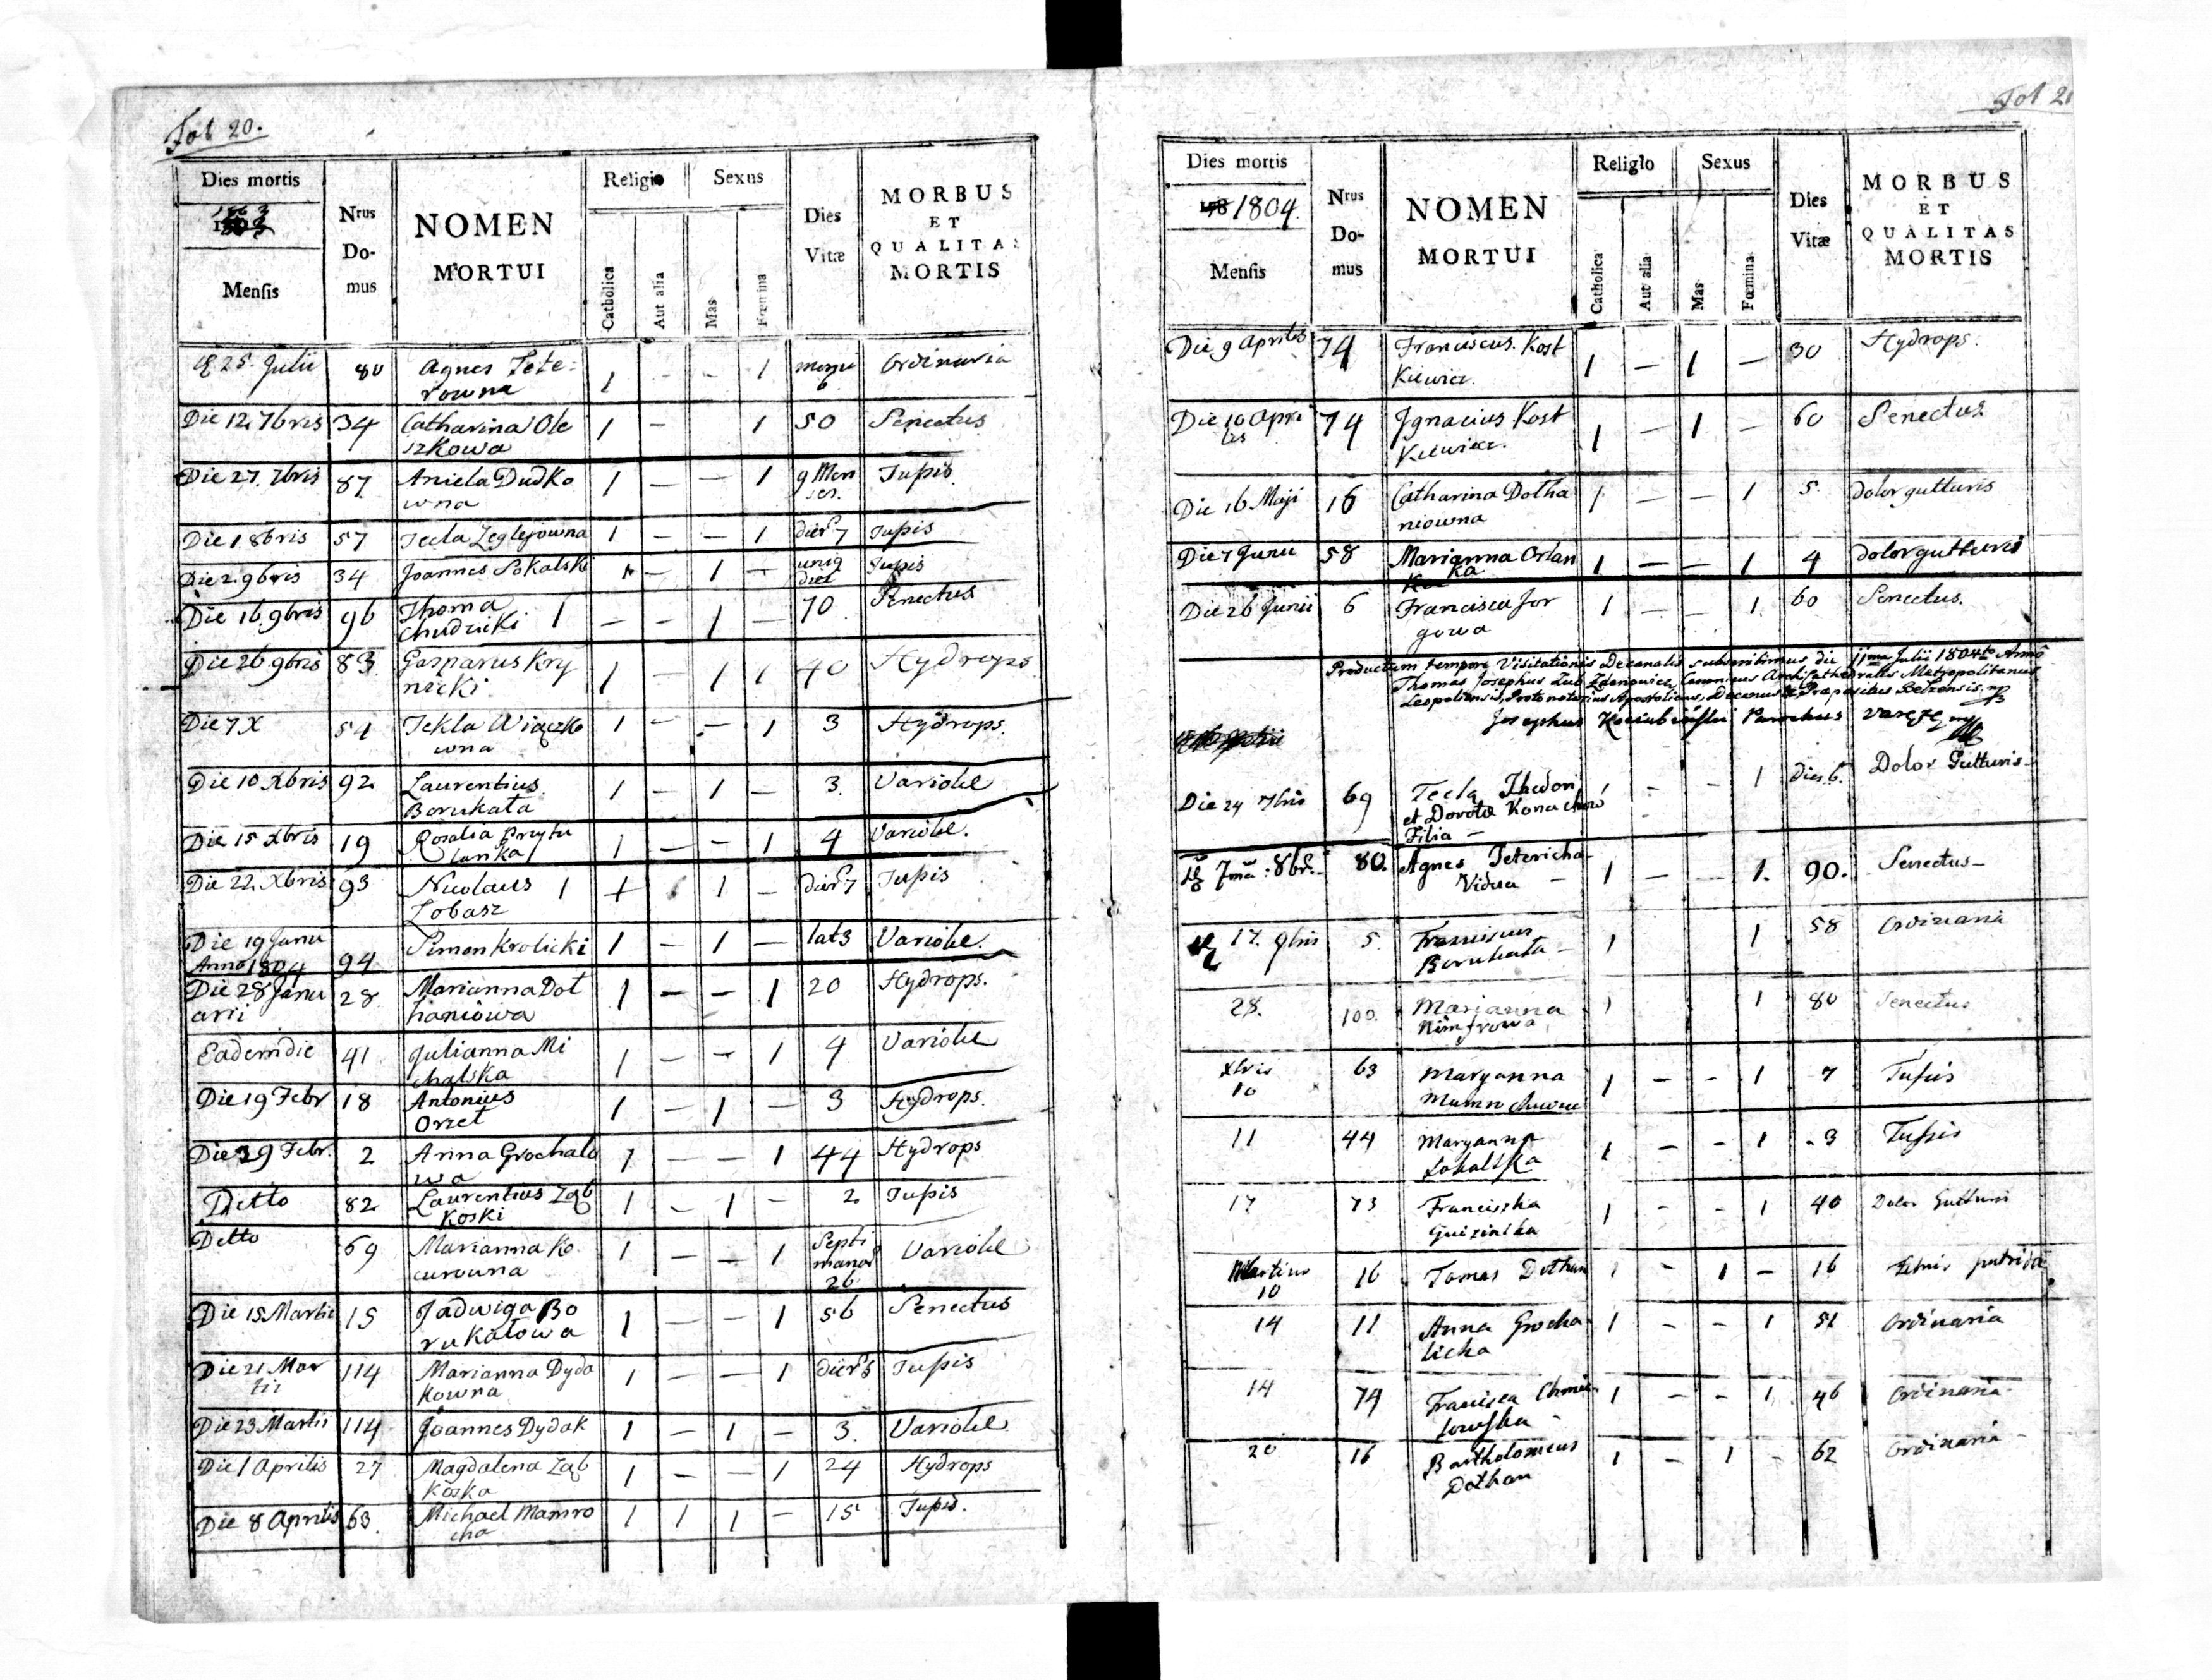 Fol 20.
Dies mortis
1803
Mensis
Nrus Domus
NOMEN MORTUI
Religio
Catholica
Aut alia
Sexus
Mas
Fœmina
Dies Vitæ
MORBUS ET QUALITAS MORTIS
25. Julii 80 Agnes Tete- 1 - - 1 6 Ordinaria
rowna
Die 12. 7bris 34 Catharina Ole 1 - 1 50 Senectus
szkowa
Die 27. 7bris 87 Aniela Dudko 1 - - 1 9 Men Tussis
wna ses.
Die 1. 8bris 57 Tecla Zeglejowna 1 - - 1 dier 7 Tussis
Die 2. 9bris 34 Joannes Sokalski 1 - 1 - Tussis
Die 16. 9bris 96 Thoma 1 - - 1 - 70 Senectus
Chudzicki
Die 26 9bris 83 Gasparus Kry 1 - 1 1 40 Hydrops
nicki
Die 7 X 54 Tekla Wiączko 1 - - 1 3 Hydrops.
wna
Die 10 Xbris 92 Laurentius 1 - 1 - 3. Variolæ
Borukata
Die 15 Xbris 19 Rosalia Przytu 1 - - 1 4 Variolæ.
lanka
Die 22 Xbris 93 Nicolaus 1 1 1 - dier 7 Tussis
Lobasz
Die 19 Janu 94 Simon Krolicki 1 - 1 - lat 3 Variolæ.
Anno 1804
Die 28 Janu 28 Marianna Dot 1 - - 1 20 Hydrops.
arii haniowa
Eadem die 41 Julianna Mi 1 - - 1 4 Variolæ
chalska
Die 19 Febr 18 Antonius 1 - 1 - 3 Hydrops.
Orzet
Die 29 Febr. 2 Anna Grochalo 1 - - 1 44 Hydrops
wa
Detto 82 Laurentius Ząb 1 - 1 - 2 Tussis
koski
Detto 69 Marianna Ko 1 - - 1 Septi Variolæ
curowna manar 26
Die 15 Martii 15 Jadwiga Bo 1 - - 1 56 Senectus
rukatowa
Die 21 Mar 114 Marianna Dyda 1 - - 1 dier 5 Tussis
tii kowna
Die 23 Martii 114 Joannes Dydak 1 - 1 - 3. Variolæ
Die 1 Aprilis 27 Magdalena Ząb 1 - - 1 24 Hydrops
koska
Die 8 Aprilis 63. Michael Mamro 1 1 1 - 15 Tussis.
cha
Fol 21
Dies mortis
1804.
Mensis
Nrus Domus
NOMEN MORTUI
Religio
Catholica
Aut alia
Sexus
Mas
Fœmina
Dies Vitæ
MORBUS ET QUALITAS MORTIS
Die 9 Aprilis 74 Franciscus Kost 1 - 1 - 30 Hydrops.
kiewicz.
Die 10 Apri 74 Ignacius Kost 1 - 1 - 60 Senectus
lis kiewicz.
Die 16 Maji 16 Catharina Dotha 1 - - 1 5. dolor gutturis
niowna
Die 7 Junii 58 Marianna Orlan 1 - - 1 4 dolor gutturis
ka
Die 26 Junii 6 Francisca Jor 1 - - 1 60 Senectus.
gowa
Productum tempore Visitationis Decanalis subscribimus die 11ma Julii 1804to Anno
Thomas Josephus Zdanowicz Canonicus Archicathedralis Metropolitanus
Leopoliensis, Protonotarius Apostolicus, Decanus & Præpositus Belzensis. mp
Josephus Parochus mp
Die 24 7bris 69 Tecla Thedori 1 - - 1 dies 6. Dolor Gutturis-
et Dorota
Filia -
7ma 8br. 80. Agnes Tetericha- 1 - - 1. 90. Senectus-
Vidua -
17. 9bris 5. Franciscus 1 1 58 Ordinaria
Borukata -
28. 100. Marianna 1 1 80 Senectus
Nimfrowa
Xbris 63 Maryanna 1 - - 1 7 Tussis
10
11 44 Maryanna 1 - - 1 3 Tussis
Sokalska
17 73 Franciszka 1 - - 1 40 Dolor Gutturis
Martius 16 Tomas Dothan 1 - 1 - 16 Febris putrida
10
14 11 Anna Grocha 1 - - 1 51 Ordinaria
licha
14 74 Francisca Chmie 1 - - 1 46 Ordinaria-
lowska -
20 16 Bartholomeus 1 - 1 - 62 Ordinaria -
Dothan